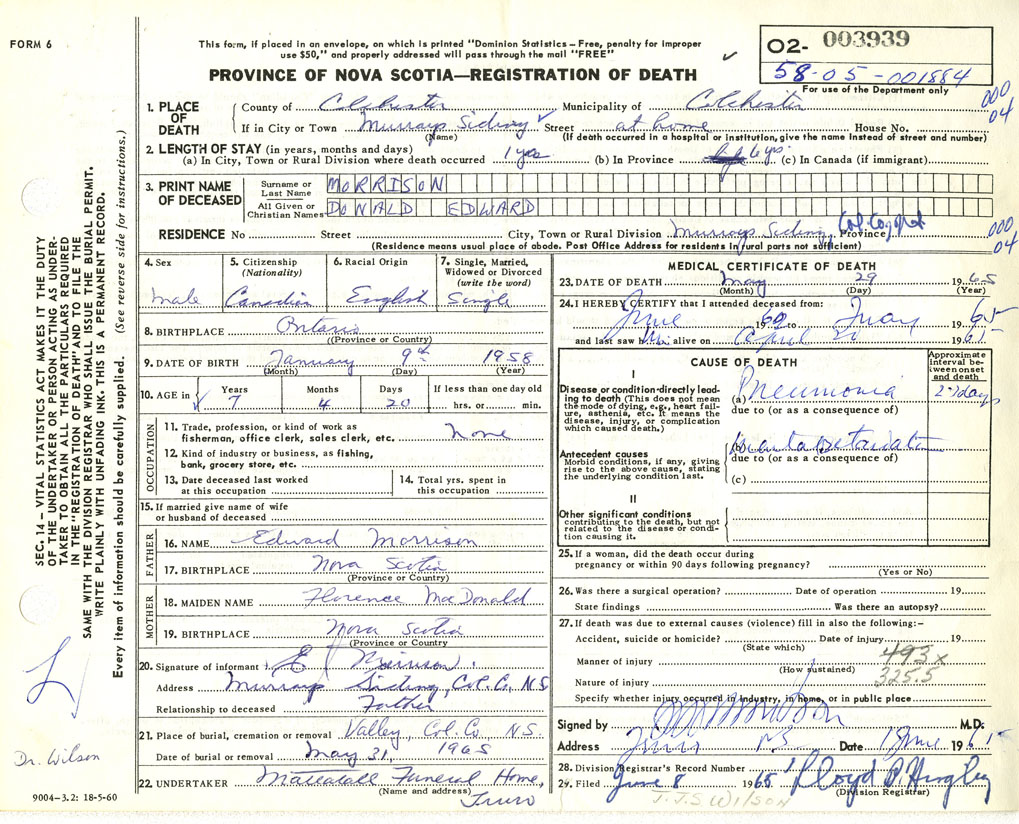 FORM 6
This form, if placed in an envelope, on which is printed "Dominion Statistics – Free, penalty for improper
use $50," and properly addressed will pass through the mail "FREE"
PROVINCE OF NOVA SCOTIA—REGISTRATION OF DEATH
O2- 003939
58-05-001884
For use of the Department only
000
04
1. PLACE OF DEATH
County of Colchester Municipality of Colchester
If in City or Town Murrays Siding Street at home House No.
(Name) (If death occurred in a hospital or institution, give the name instead of street and number)
2. LENGTH OF STAY (in years, months and days)
(a) In City, Town or Rural Division where death occurred 1 yrs (b) In Province 6 yrs (c) In Canada (if immigrant)
3. PRINT NAME OF DECEASED
Surname or Last Name MORRISON
All Given or Christian Names DONALD EDWARD
RESIDENCE No Street City, Town or Rural Division Murrays Siding Province
(Residence means usual place of abode. Post Office Address for residents in rural parts not sufficient)
000
04
4. Sex male
5. Citizenship (Nationality) Canadian
6. Racial Origin English
7. Single, Married, Widowed or Divorced (write the word) Single
8. BIRTHPLACE Ontario
(Province or Country)
9. DATE OF BIRTH January 9th 1958
(Month) (Day) (Year)
10. AGE in Years 7 Months 4 Days 20 If less than one day old hrs. or min.
OCCUPATION
11. Trade, profession, or kind of work as
fisherman, office clerk, sales clerk, etc. None
12. Kind of industry or business, as fishing,
bank, grocery store, etc.
13. Date deceased last worked
at this occupation
14. Total yrs. spent in
this occupation
15. If married give name of wife
or husband of deceased
FATHER
16. NAME Edward Morrison
17. BIRTHPLACE Nova Scotia
(Province or Country)
MOTHER
18. MAIDEN NAME Florence MacDonald
19. BIRTHPLACE Nova Scotia
(Province or Country
20. Signature of informant E Morrison.
Address Murrays Siding, Col. Co. N.S
Relationship to deceased Father
21. Place of burial, cremation or removal Valley, Col. Co N.S.
Date of burial or removal May 31, 1965
22. UNDERTAKER Mattatall Funeral Home,
(Name and address) Truro
MEDICAL CERTIFICATE OF DEATH
23. DATE OF DEATH May 29 1965
(Month) (Day) (Year)
24. I HEREBY CERTIFY that I attended deceased from:
June 1962 to May 1965
and last saw him alive on April 20 1965
CAUSE OF DEATH
Approximate interval between onset and death
I
Disease or condition directly leading to death (This does not mean the mode of dying, e.g., heart failure, asthenia, etc. It means the disease, injury, or complication which caused death.)
(a) Pneumonia 2 days
due to (or as a consequence of)
Antecedent causes
Morbid conditions, if any, giving rise to the above cause, stating the underlying condition last.
(b) Mental retardation
due to (or as a consequence of)
(c)
II
Other significant conditions
contributing to the death, but not related to the disease or condition causing it.
25. If a woman, did the death occur during
pregnancy or within 90 days following pregnancy?
(Yes or No)
26. Was there a surgical operation? Date of operation 19
State findings Was there an autopsy?
27. If death was due to external causes (violence) fill in also the following:–
Accident, suicide or homicide? Date of injury 19
(State which)
Manner of injury 493x
(How sustained)
Nature of injury 325.5
Specify whether injury occurred in industry, in home, or in public place
Signed by M.D.
Address Truro NS Date 1 June 1965
28. Division Registrar's Record Number
29. Filed June 8 1965 Lloyd B Hingley
(Division Registrar)
J.J.S WILSON
SEC. 14 – VITAL STATISTICS ACT MAKES IT THE DUTY
OF THE UNDERTAKER OR PERSON ACTING AS UNDER-
TAKER TO OBTAIN ALL THE PARTICULARS REQUIRED
IN THE "REGISTRATION OF DEATH" AND TO FILE THE
SAME WITH THE DIVISION REGISTRAR WHO SHALL ISSUE THE BURIAL PERMIT.
WRITE PLAINLY WITH UNFADING INK. THIS IS A PERMANENT RECORD.
Every item of information should be carefully supplied. (See reverse side for instructions.)
Dr. Wilson
9004-3.2: 18-5-60